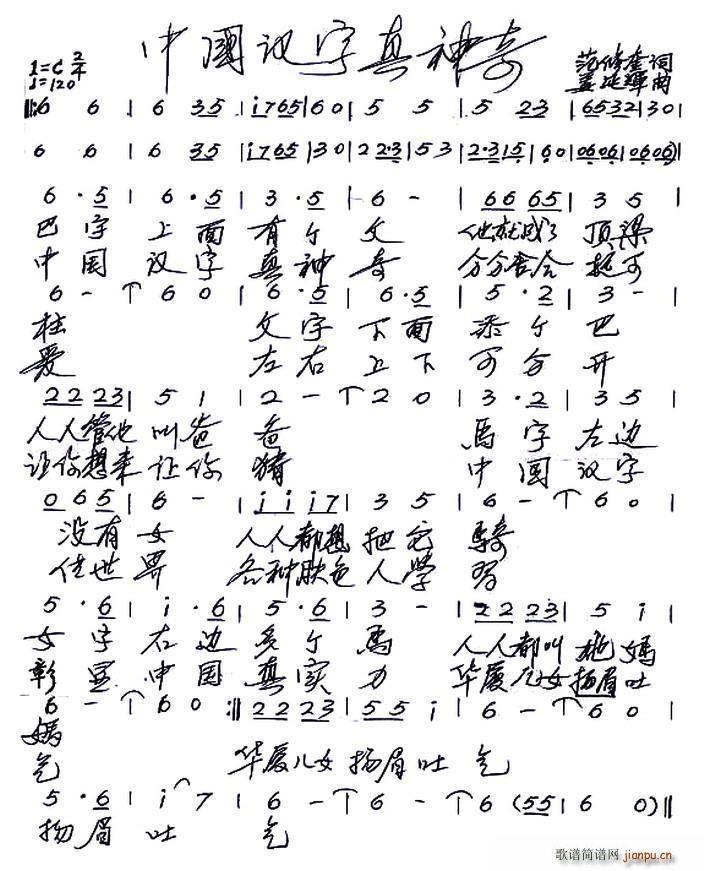 中國汉字真神奇
1=C 2/4
♩=120
范修奎词
姜延輝曲
‖: 6 6 | 6 35 | i765 | 60 | 5 5 | 5 23 | 6532 | 30 |
6 6 | 6 35 | i765 | 30 | 22·3 | 53 | 2·315 | 60 | 0606 | 0606 ‖
6·5 | 6·5 | 3·5 | 6 - | 6665 | 3 5 |
巴字上面有个父 他就成了顶梁
中国汉字真神奇 分分合合挺可
6 - | 6 0 | 6·5 | 6·5 | 5·2 | 3 - |
柱 父字下面添个巴
爱 左右上下可分开
2223 | 5 1 | 2 - | 2 0 | 3·2 | 3 5 |
人人管他叫爸爸 馬字左边
让你想来让你猜 中国汉字
065 | 6 - | iii7 | 3 5 | 6 - | 6 0 |
没有女 人人都想把它騎
传世界 各种肤色人學习
5·6 | i·6 | 5·6 | 3 - | 2223 | 5 i |
女字右边多个馬 人人都叫她媽
彰显中国真实力 华厦儿女扬眉吐
6 - | 6 0 :‖ 2223 | 55 i | 6 - | 6 0 |
媽
气 华厦儿女扬眉吐气
5·6 | i 7 | 6 - | 6 - | 6 (55 | 6 0) ‖
扬眉吐气
歌谱简谱网
jianpu.cn